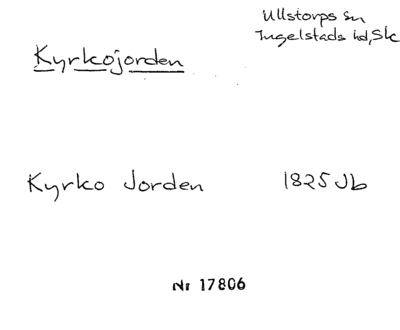 Ullstorps sn
Ingelstads hd, Sk
Kyrkojorden
Kyrko Jorden 1825 Jb
Nr 17806